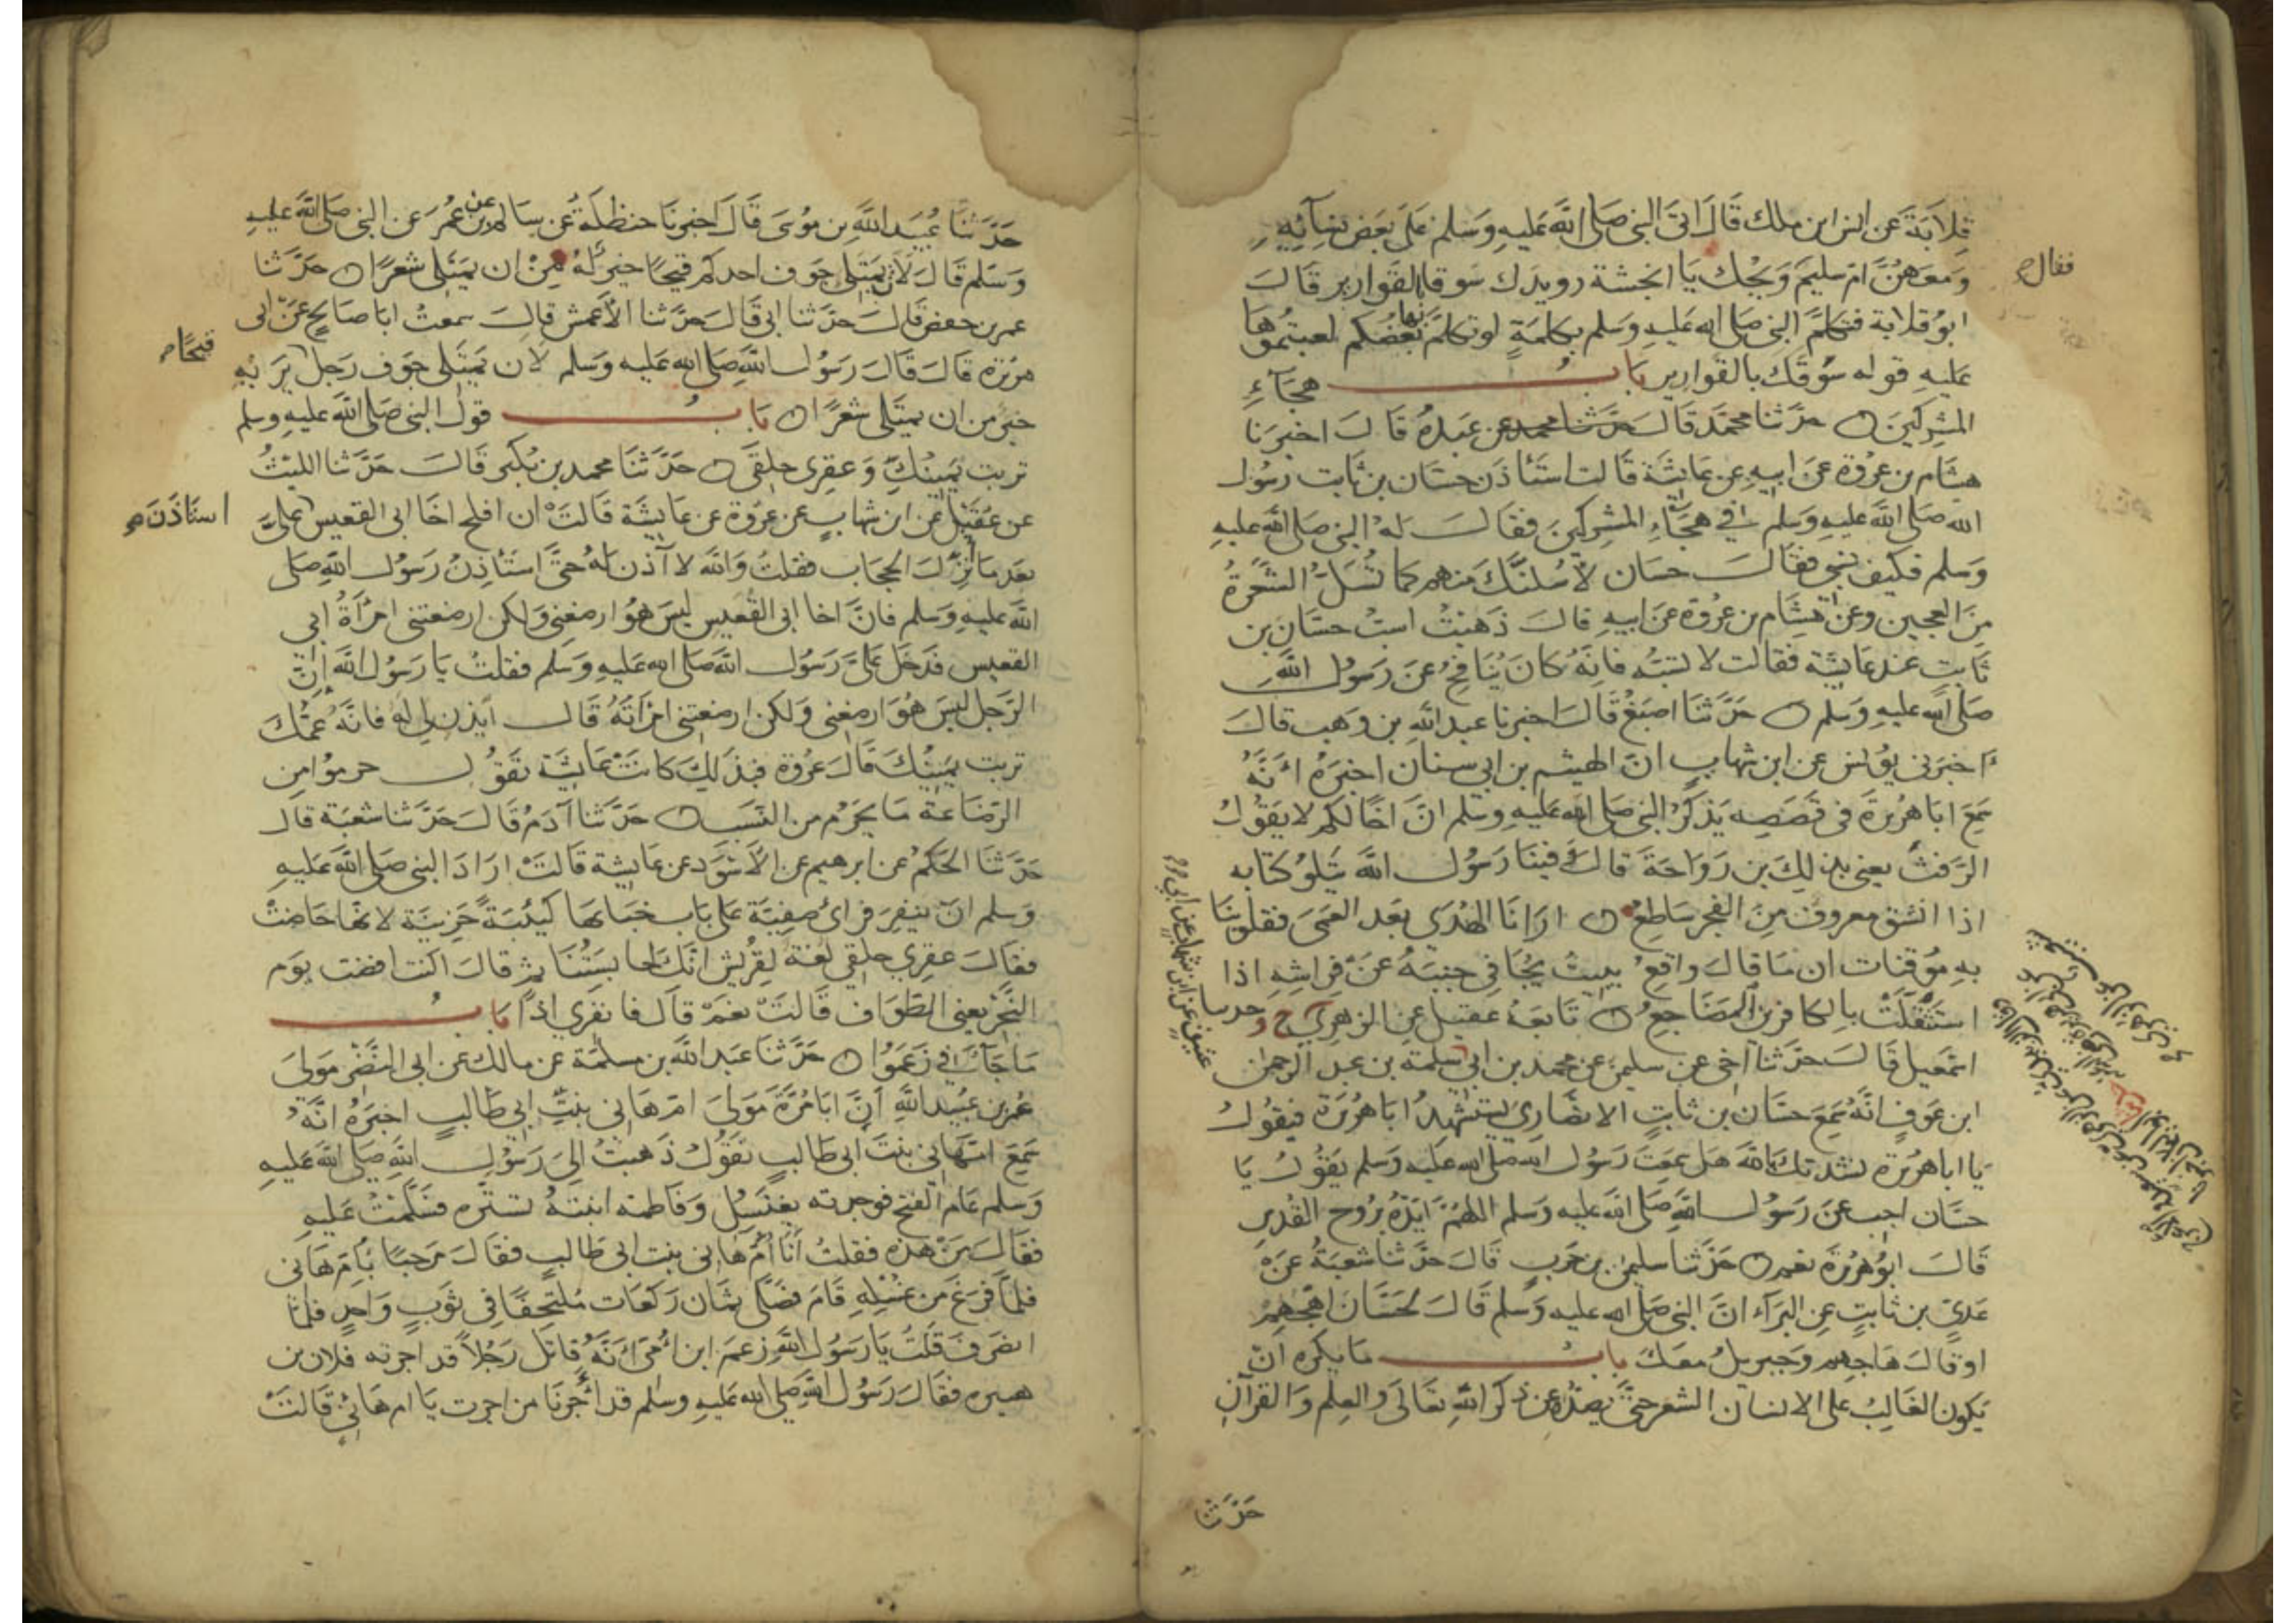 قِلاَبَةَ عَن انس ابن ملك قَالَ اتى النبى صَلى الله عَليهِ وَسَلم عَلَى بَعَض نِسَآئِهِ
وَمعَهُنَّ امّ سليم وَيْحك يَا انجشة رويدك سَوقا بالقَوَارير قَالَ
ابوُ قلابة فتكلمَ النبى صَلى الله عَليه وَسَلم بكلمَةٍ لو تكلمَ بها بَعضُكم لعبتمُوهَا
عَليهِ قوله سَوْقَك بالقَوارير بَابُ هِجَآءِ
المشركينَ حدَّثنا محمَّد قَالَ حدَّثنا محمد عن عَبدةُ قَالَ اخبرَنا
هشَام بن عرُوة عَن ابيهِ عن عَايشَة قَالت استَأذَن حسَّان بن ثَابت رسُول
الله صَلى الله عَليهِ وَسَلم في هجَآءِ المشركينَ فقَالَ لهُ النبى صَلى الله عليهِ
وَسَلم فكيفَ بنسَبى فقَالَ حسَان لأسُلنَّكَ منهم كما تُسَلُّ الشعَرَةُ
مِنَ العجين وعَن هشَام بن عرُوة عَن ابيهِ قالَ ذَهَبْتُ اسبُّ حسَّانَ بن
ثَابت عند عَايشَة فقالت لا تسُبّه فانَّهُ كانَ يُنَافِحُ عَن رَسوُل اللَّهِ
صَلى الله عليهِ وَسَلم حَدَّثنا اصبَغُ قَالَ اخبرنا عبد اللَّهِ بن وَهب قَالَ
اخبَرنى يوُنس عن ابن شهابٍ انّ الهيثم بن ابى سنان اخبَرهُ انَّهُ
سَمِعَ ابَا هُريرَةَ فى قَصَصِه يَذكُرُ النبى صَلى الله عَليهِ وسَلم انّ اخًا لكم لا يَقوُلُ
الرَفثَ يعنى بذلِكَ بن رَوَاحَةَ قَالَ فينَا رَسوُل اللَّه يَتلوُ كتَابه
اذا انشق معروفٌ مِنَ الفجر سَاطِعُ ارَانَا الهُدَى بَعد العَمى فقلوبنَا
بهِ مُوقنَات ان مَا قالَ وَاقِعُ يبيتُ يجُافى جنبَهُ عَن فِرَاشِهِ اذا
استَثقَلَتْ بالكافرين المضَاجعُ تَابعَهُ عقيل عن الزهرىّ ح وحدثنا
اسمَعيل قَالَ حدَّثنا اخى عن سليمن عن محمد بن ابى سلمة بن عبد الرحمن
ابن عَوفٍ انَّهُ سَمِعَ حسَّان بن ثابتٍ الانصَارىَّ يستشْهِدُ ابَا هُريَرَة فيَقوُلُ
يَا ابا هُريْرة نشَدتكَ باللَّه هَل سَمِعتَ رَسوُل الله صَلى الله عَليه وَسَلم يَقوُلُ يَا
حسَّان اجب عَن رَسوُل اللَّهِ صَلى الله عليه وَسَلم اللهُمّ ايّدْهُ برُوح القُدسِ
قَالَ ابوُ هُرَيْرَة نعم حَدَّثنا سليمن بن حَربٍ قَالَ حدَّثنا شعبَةُ عَن
عَدِىّ بن ثَابتٍ عن البَرَآء انَّ النبى صَلى الله عليه وَسَلم قَالَ لحسَّانَ اهجُهِمُ
او قالَ هَاجِهم وَجبريلُ معَكَ بَابُ مَا يكره انْ
يَكونَ الغَالِبُ على الانسَان الشعرُ حتى يَصُدّه عن ذكر اللَّهِ تعَالى والعِلم وَالقرآنِ
حَدَّثنا
فقال
حَدَّثنَا عُبَيد اللَّهِ بن موُسَى قَالَ اخبرنَا حنظلَةُ عن سَالم عن بن عُمَر عَن النبى صَلى الله عليهِ
وَسَلم قَالَ لاَن يمتَلى جَوف احدكم قَيحًا خير لَهُ مِنْ ان يَمتَلى شعرًا حدَّثنا
عمر بن حفصٍ قَالَ حدَّثنا ابى قَالَ حَدَّثنا الأعمش قالَ سمعتُ ابَا صَالحٍ عَن ابى
هرَيْرة قَالَ قَالَ رَسُول اللَّهِ صَلى الله عليه وَسَلم لأن يَمْتَلى جَوف رَجل يَرِيَهِ
خير من ان يمتَلى شعرًا بَابُ قول النبى صَلى الله عليهِ وسلم
تربت يَمينُكِ وَعقرى حلقَى حَدَّثنَا محمد بن بُكير قَالَ حَدَّثنا الليثُ
عن عُقَيل عن ابن شهابٍ عن عرُوَة عن عَايشَة قَالتْ ان افلح اخَا ابى القعيس عَلىَّ
بعَد مَا نزلَ الحجَاب فقلتُ وَاللَّه لا آذن لهُ حتىَّ استَأذِنُ رَسوُل اللَّهِ صَلى
الله عَليهِ وَسَلم فانَّ اخا ابى القُعَيس ليسَ هُوَ ارضعَنى وَلكن ارضعتنى امرَأةُ ابى
القعيس فدَخَل عَلىَّ رَسُول اللَّهِ صَلى الله عَليهِ وَسَلم فقلتُ يَا رَسوُل اللَّه انَّ
الرّجل ليسَ هُوَ ارضعَنى وَلكن ارضعتنى امرَأتَهُ قَال ايذنى لهُ فانَّهُ عَمُّكَ
تربت يَمينُكَ قَالَ عرُوة فبذَلِكَ كانَتْ عَايشَة تَقوُل حرموُا من
الرَّضَاعَة مَا يَحرُم من النسَب حَدَّثنا آدَمُ قَالَ حَدَّثنا شعبَة قَالَ
حَدَّثنَا الحكمُ عن ابرهيم عن الأسْوَد عن عَايشة قَالتْ ارَادَ النبى صَلى الله عَليهِ
وَسلم انْ ينفِرَ فرَاىَ صفيَّة عَلى بَاب خبَائهَا كئيبَةً حَزِينَة لانهَا حَاضتْ
فقالَ عقرى حلقى لغة لقُرَيش انّكَ لحابسَتُنَا ثم قالَ اكنت افضت يوَم
النَّحْر يعنى الطّوَاف قَالتْ نعَمْ قالَ فانفرى اذًا بَابُ
مَا جَآءَ فى زَعَمُوا حَدَّثنا عبد اللَّه بن مسلمَة عن مالك عن ابى النَّضْر مَولىَ
عُمر بن عُبيد اللَّهِ أنَّ ابَا مُرَّةَ مَولىَ امّ هَانى بنتِ ابى طَالبٍ اخبَرَهُ انَّهُ
سَمِعَ امّ هَانى بنتَ ابى طَالبٍ تقَوُل ذَهبتُ الىَ رَسوُل اللَّهِ صَلى الله عَليهِ
وَسلم عَام الفتح فوجدته يغتسَلُ وَفَاطمَه ابنتَهُ تستُرُه فسَلّمتُ عَليهِ
فقالَ مَنْ هذه فقلتُ أنا أمّ هَانى بنت ابى طَالب فقالَ مرَحبًا بأمّ هَانى
فلمَّا فَرَغَ من غسْلِهِ قَامَ فصَلَّى ثمَان رَكعَات مُلتَحِفًا فى ثوَبٍ وَاحدٍ فلمَّا
انصَرفَ قلتُ يَا رَسوُل اللَّهِ زعَمَ ابن أُمّى انَّهُ قَاتل رَجُلاً قد اجرته فلان بن
هبيره فقَالَ رَسوُل اللَّهِ صَلى الله عَليهِ وسَلم قد أَجَرنَا من اجرت يَا ام هَانِئٍ قَالتْ
قيحًا
استَأذَنَ